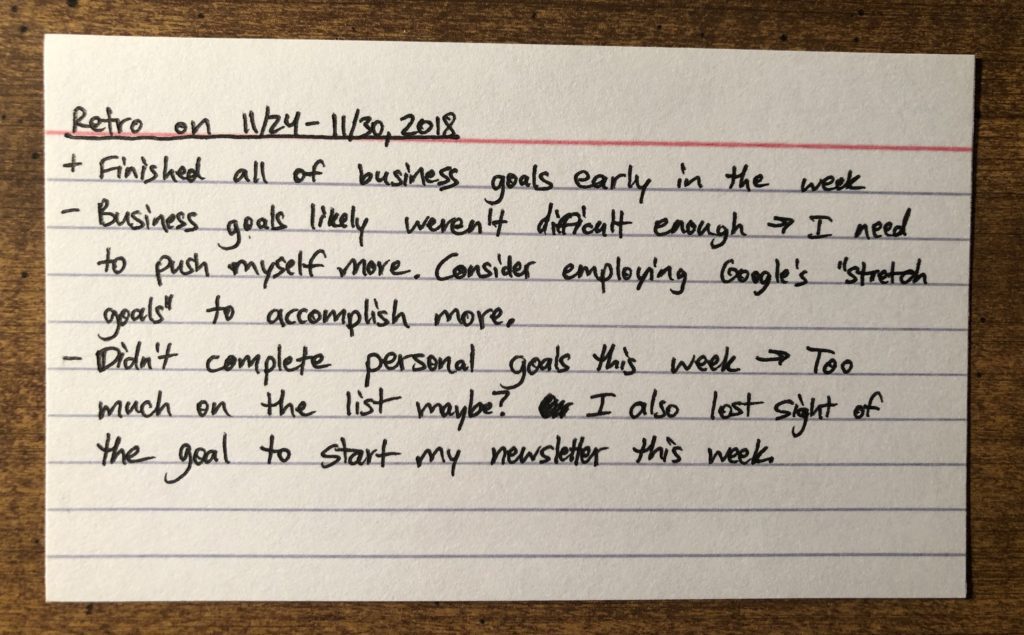 Retro on 11/24 - 11/30, 2018
+ Finished all of business goals early in the week
- Business goals likely weren't difficult enough → I need
to push myself more. Consider employing Google's "stretch
goals" to accomplish more.
- Didn't complete personal goals this week → Too
much on the list maybe? I also lost sight of
the goal to start my newsletter this week.